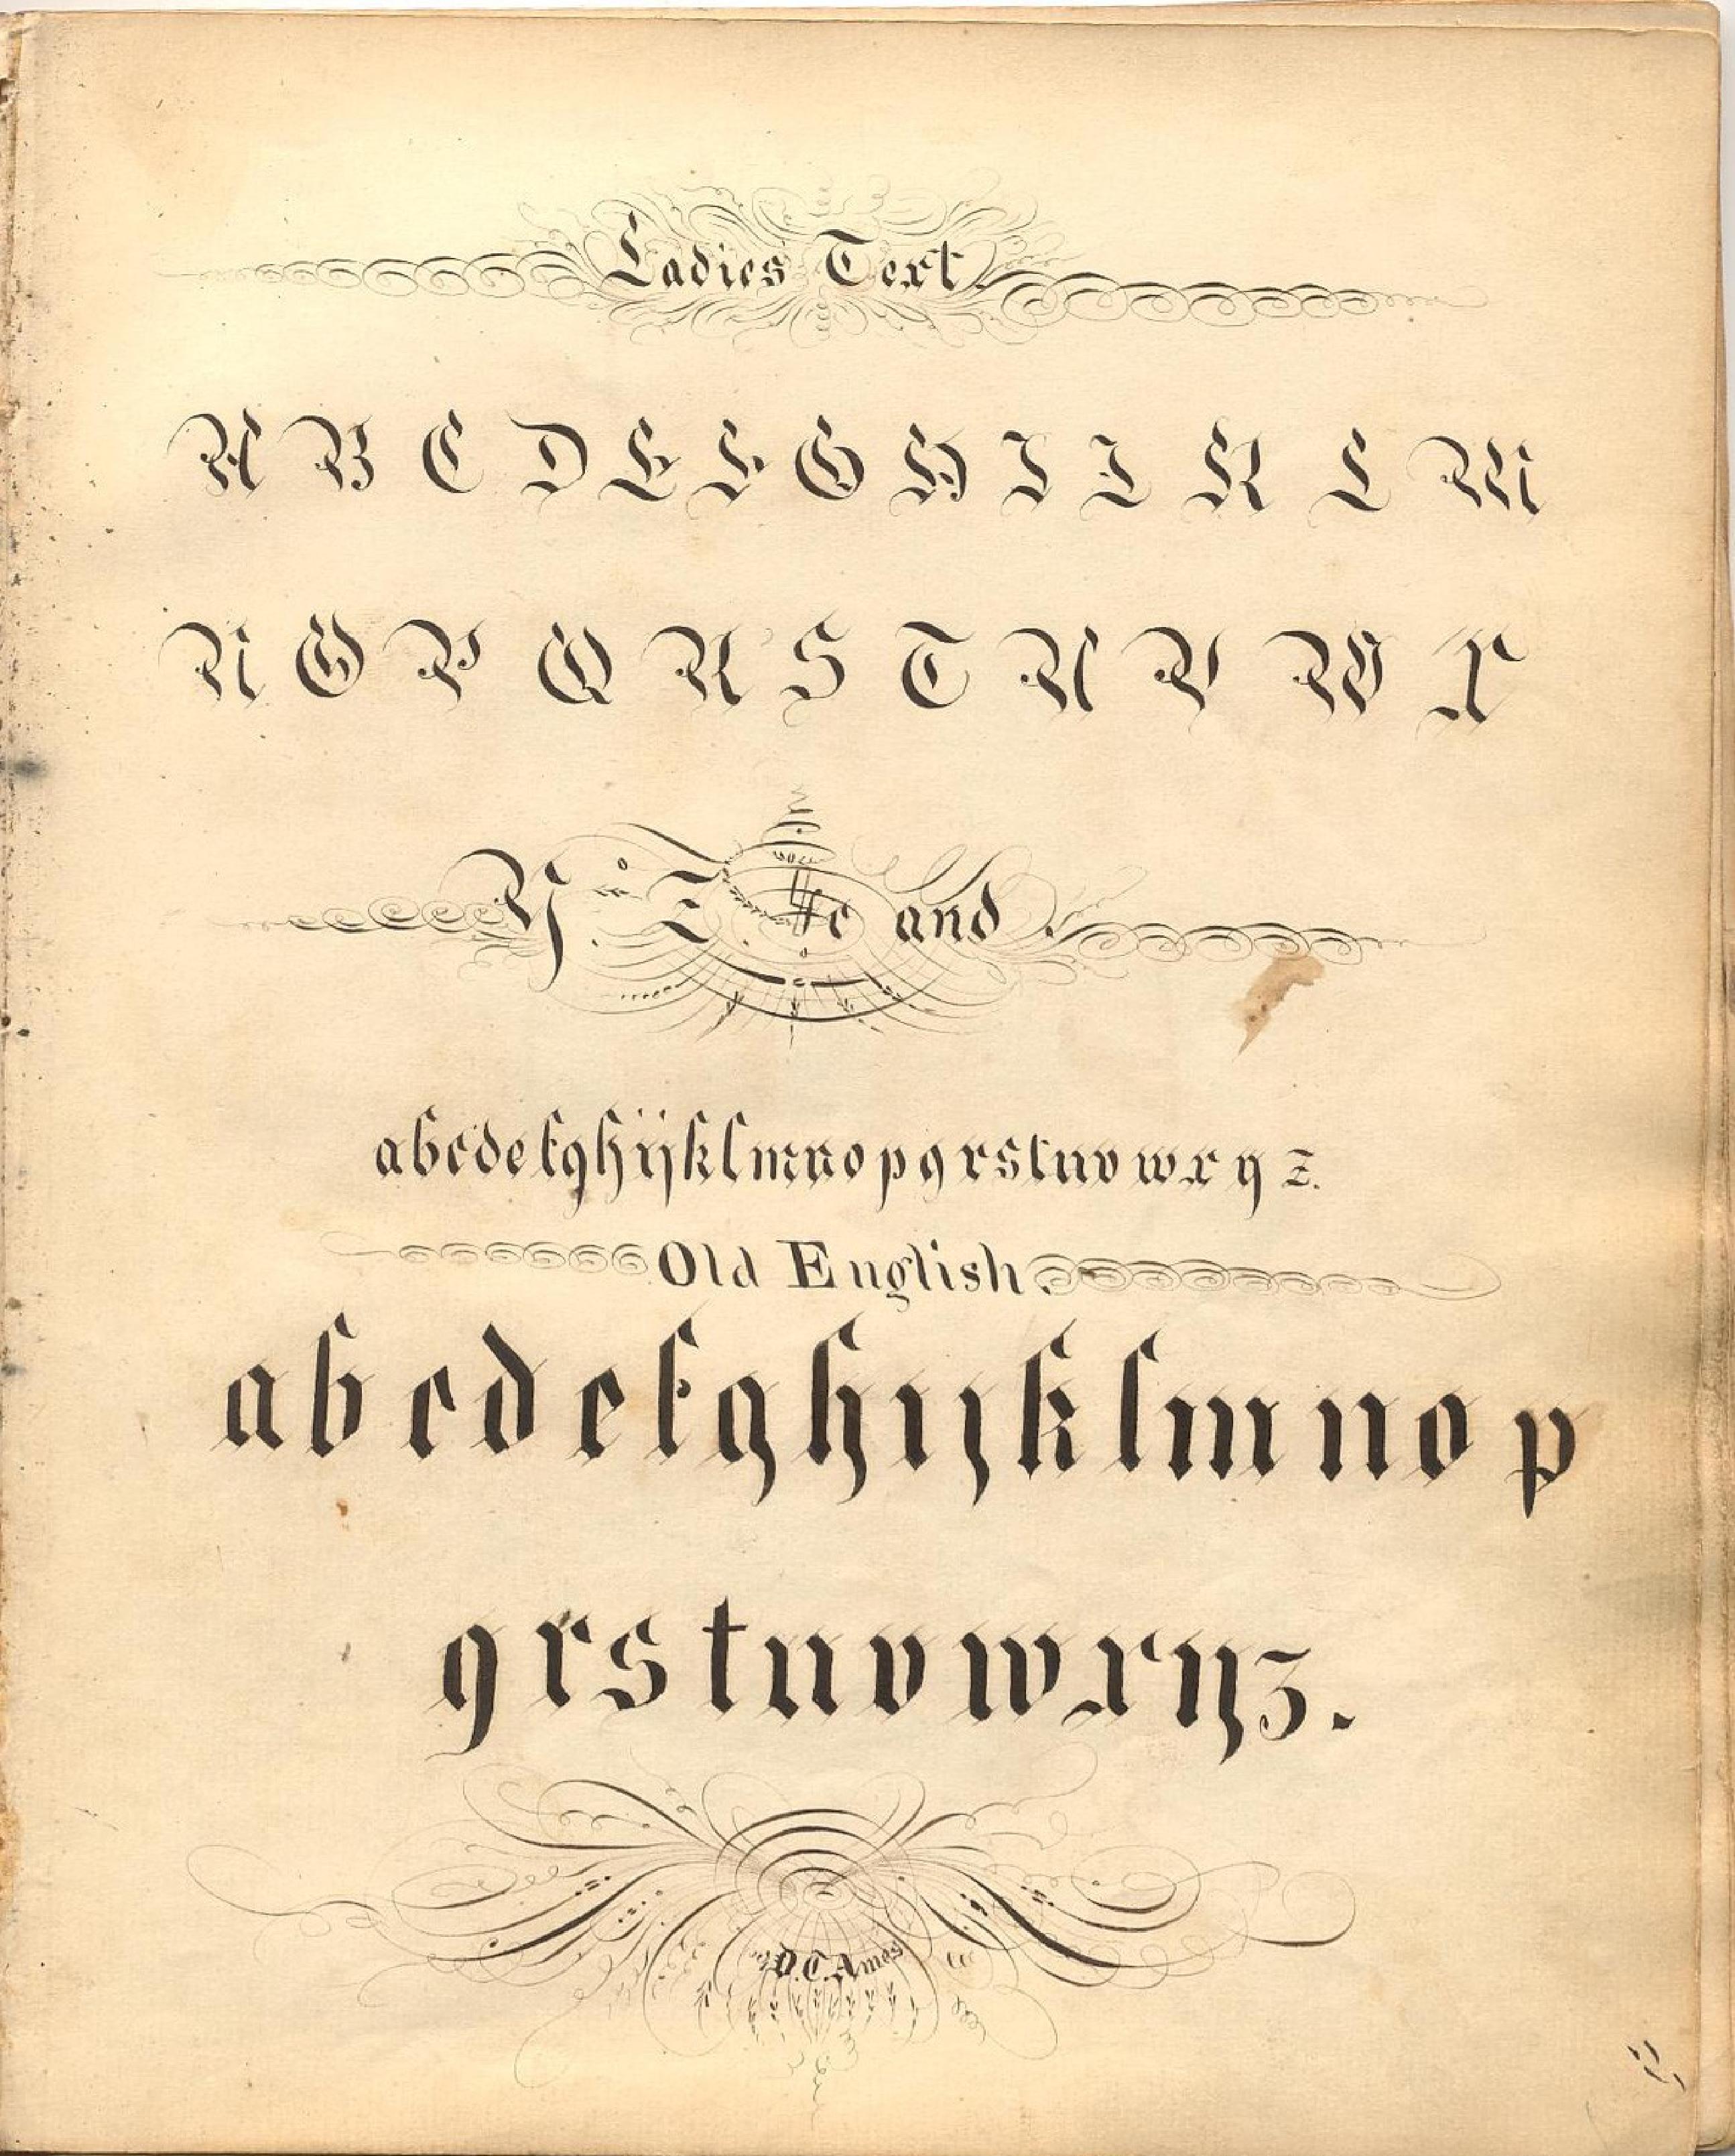 Ladies Text.
A B C D E F G H I J K L M
N O P Q R S T U V W X
Y. Z. &c and
a b c d e f g h i j k l m n o p q r s t u v w x y z.
Old English.
a b c d e f g h i j k l m n o p
q r s t u v w x y z.
D. T. Ames